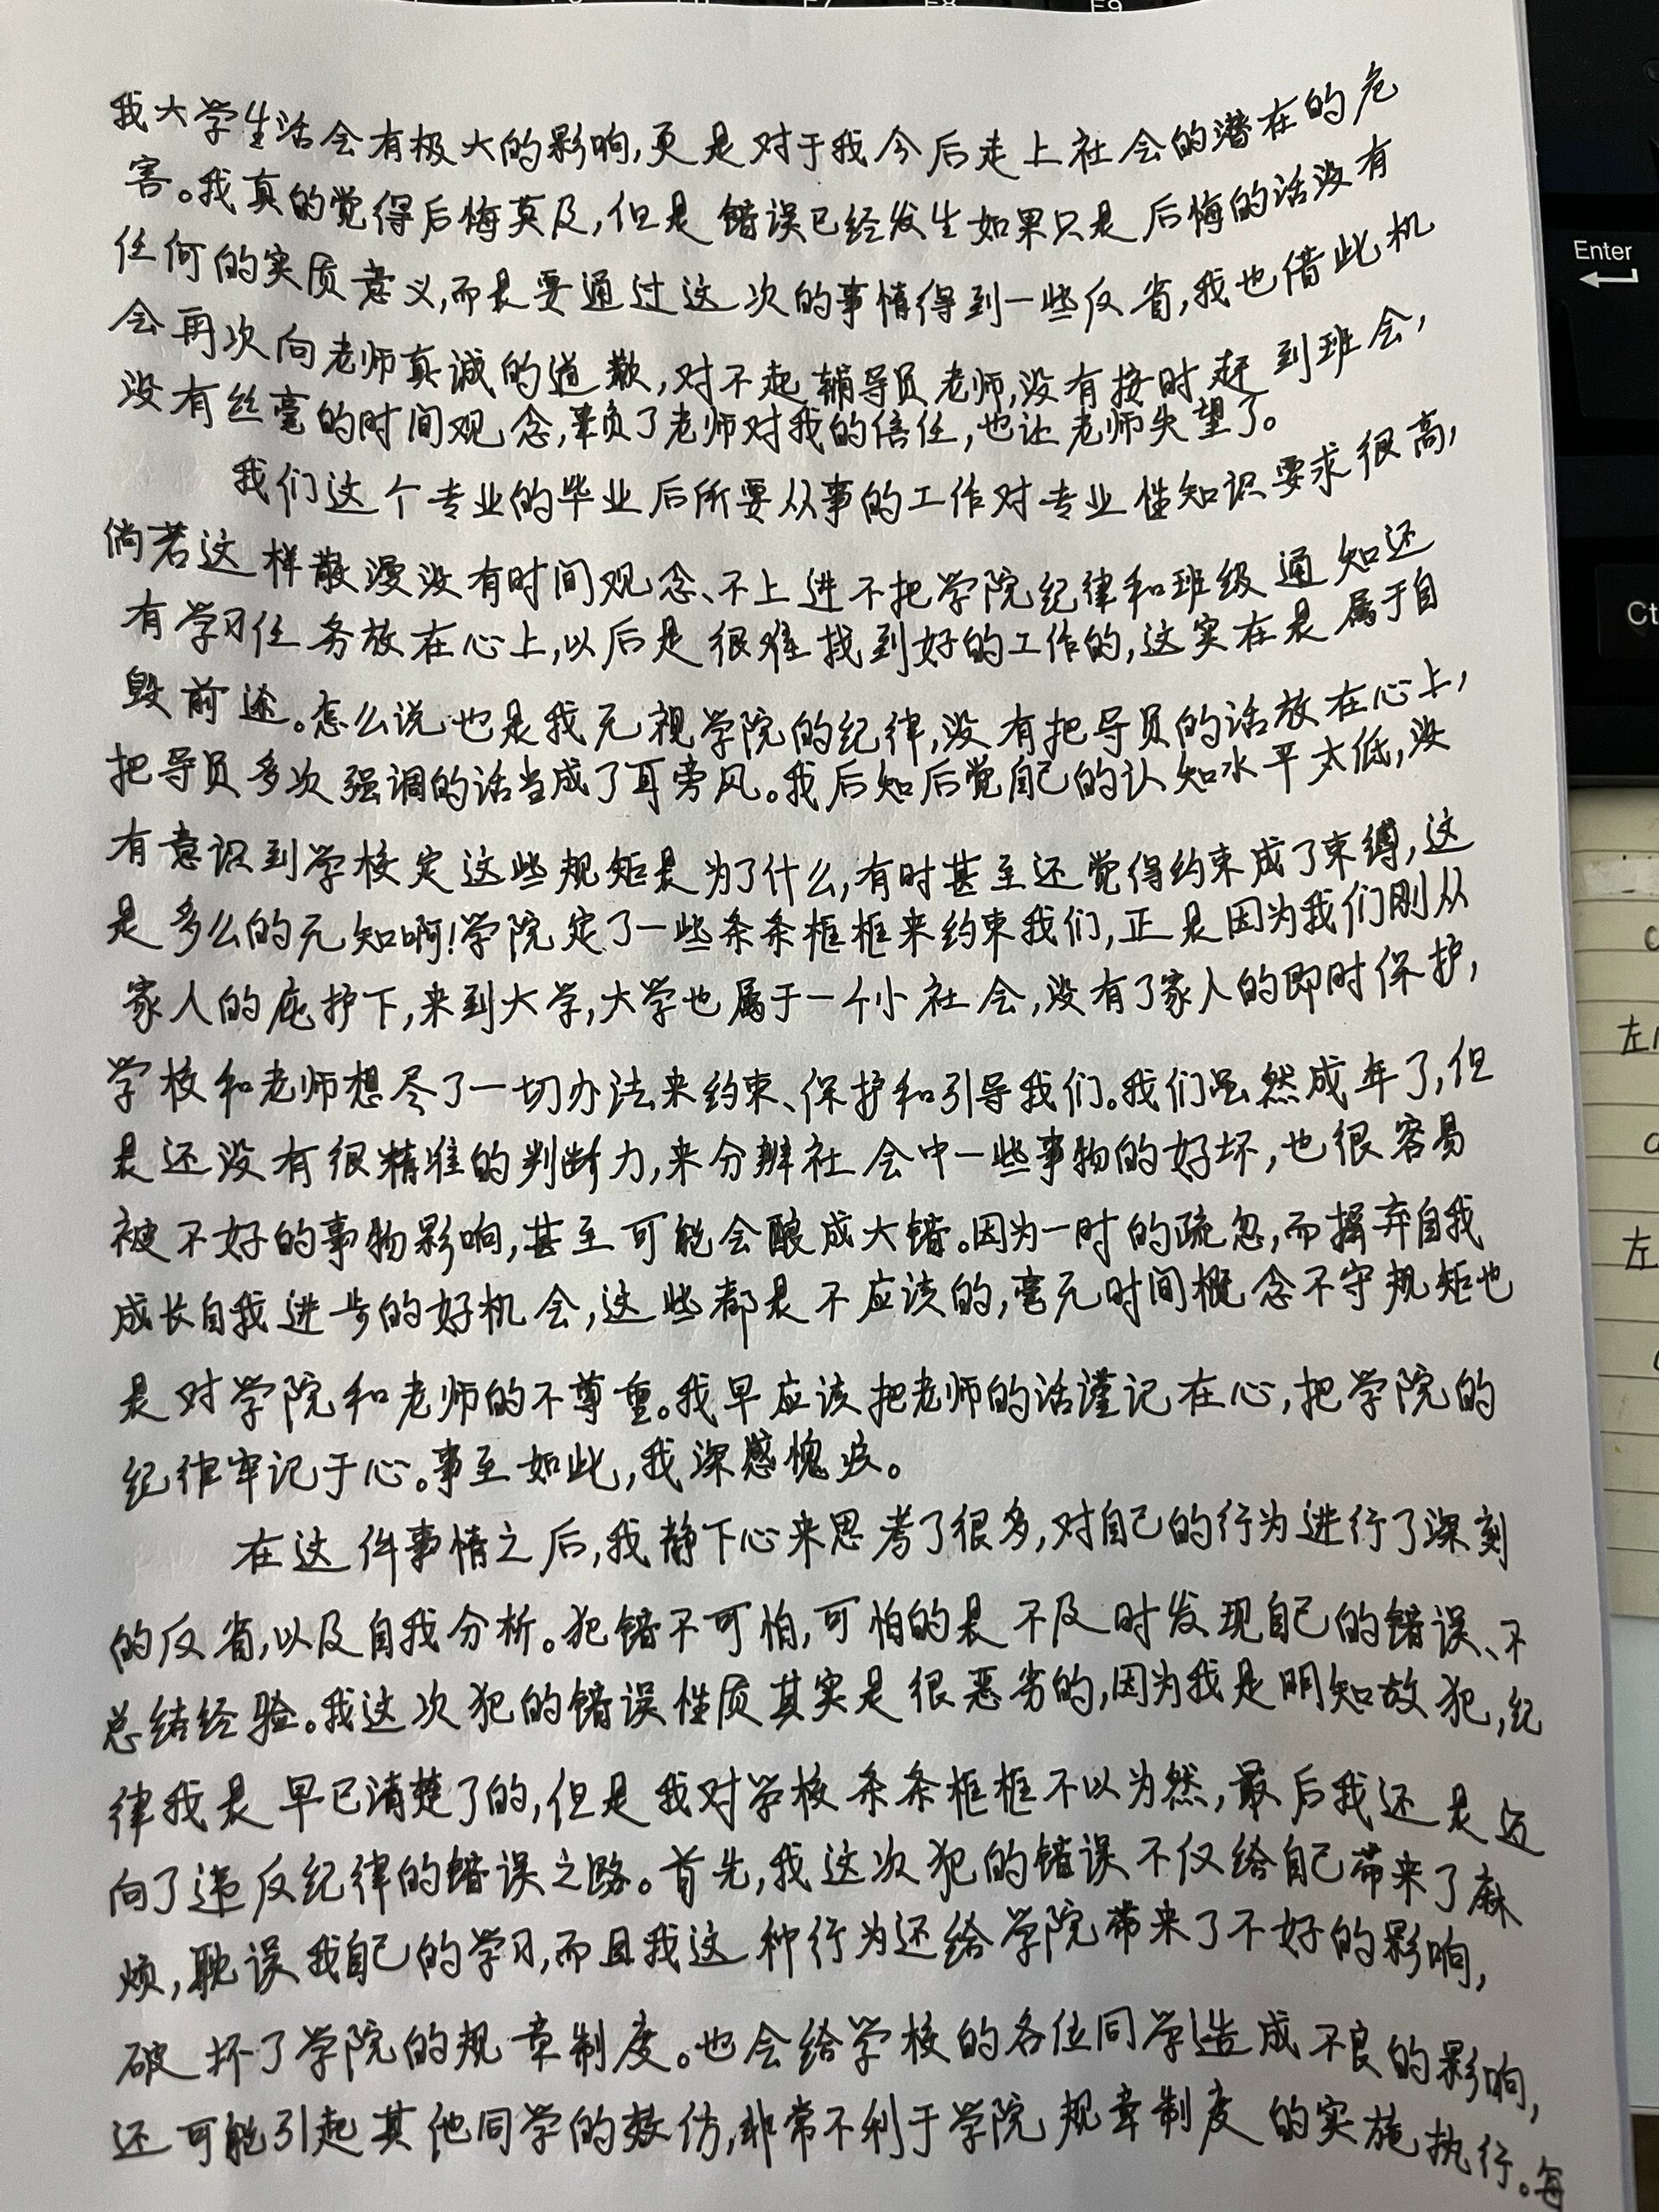 F7
F8
F9
Enter
Ct
我大学生活会有极大的影响,更是对于我今后走上社会的潜在的危
害。我真的觉得后悔莫及,但是错误已经发生如果只是后悔的话没有
任何的实质意义,而是要通过这次的事情得到一些反省,我也借此机
会再次向老师真诚的道歉,对不起辅导员老师,没有按时赶到班会,
没有丝毫的时间观念,辜负了老师对我的信任,也让老师失望了。
我们这个专业的毕业后所要从事的工作对专业性知识要求很高,
倘若这样散漫没有时间观念、不上进不把学院纪律和班级通知还
有学习任务放在心上,以后是很难找到好的工作的,这实在是属于自
毁前途。怎么说也是我无视学院的纪律,没有把导员的话放在心上,
把导员多次强调的话当成了耳旁风。我后知后觉自己的认知水平太低,没
有意识到学校定这些规矩是为了什么,有时甚至还觉得约束成了束缚,这
是多么的无知啊!学院定了一些条条框框来约束我们,正是因为我们刚从
家人的庇护下,来到大学,大学也属于一个小社会,没有了家人的即时保护,
学校和老师想尽了一切办法来约束、保护和引导我们。我们虽然成年了,但
是还没有很精准的判断力,来分辨社会中一些事物的好坏,也很容易
被不好的事物影响,甚至可能会酿成大错。因为一时的疏忽,而摒弃自我
成长自我进步的好机会,这些都是不应该的,毫无时间概念不守规矩也
是对学院和老师的不尊重。我早应该把老师的话谨记在心,把学院的
纪律牢记于心。事至如此,我深感愧疚。
在这件事情之后,我静下心来思考了很多,对自己的行为进行了深刻
的反省,以及自我分析。犯错不可怕,可怕的是不及时发现自己的错误、不
总结经验。我这次犯的错误性质其实是很恶劣的,因为我是明知故犯,纪
律我是早已清楚了的,但是我对学校条条框框不以为然,最后我还是迈
向了违反纪律的错误之路。首先,我这次犯的错误不仅给自己带来了麻
烦,耽误我自己的学习,而且我这种行为还给学院带来了不好的影响,
破坏了学院的规章制度。也会给学校的各位同学造成不良的影响,
还可能引起其他同学的效仿,非常不利于学院规章制度的实施执行。每
左
左